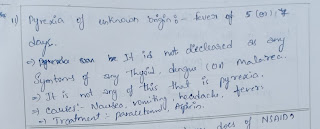 11) Pyrexia of unknown origin :- fever of 5 (or) 7
days.
=> can be It is not decleared as any
Symtoms of any Thyoid, dengue (or) Malarea.
=> It is not any of this that is pyrexia.
=> Causes :- Nausea, vomiting, headache, fever.
=> Treatment : paracetamol, Aspirin.
does of NSAIDs